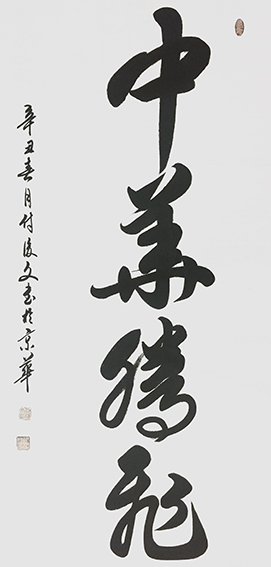 中華騰飛
辛丑春月付俊文書於京華